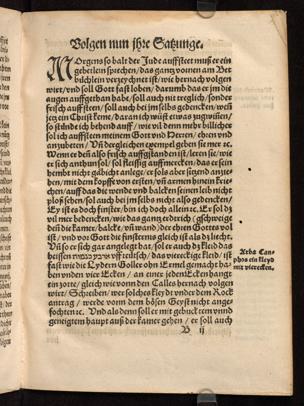 Volgen nun jhre Satzunge.
MOrgens so balt der Jude auffsteet muß er ein
gebetlein sprechen / das gantz vornen am Bet
büchlein verzeychnet ist / wie hernach volgen
wirt / vnd soll Gott fast loben / darumb das er jm die
augen auffgethan habe / soll auch nit treglich / sonder
frisch auff steen / soll auch bei jm selbs gedencken / weñ
jetz ein Christ keme / daran ich wüst etwas zugwiñen /
so stünde ich behend auff / wie vil denn mehr billicher
sol ich auffsteen meinem Gott vnd Herren / ehren vnd
anzubetten / Vñ dergleichen exempel geben sie mer ꝛc.
Wenn er deñ also frisch auffgestanden ist /
er sich anthun sol / sol fleissig auffmercken / das er sein
hembt nicht
hen / mit dem kopff von ersten / vñ armen hinein krie-
chen / auff das die wende vnd balcken seinen leib nicht
ploß sehen / sol auch bei jm selbs nicht also gedencken /
Ey ist es doch finster / bin ich doch allein ꝛc. Er sol
vil mer bedencken / wie das gantz erdtrich / gschweige
deñ die kamer / balcke / vñ wand / der ehren Gottes vol
ist / vnd vor Gott die finsternis gleich ist als dz liecht.
Vñ so er sich gar angelegt hat / sol er auch dz kleid das
heissen
fast wie die
haben vnder vier Ecken / an einer jeden Ecken hangt
ein zotte / gleich wie vornen des Talles hernach volgen
wirt / Schreiben / wer solches kleyd vnder dem Rock
antrag / werde vonn dem bösen Geyst nicht ange-
fochten ꝛc. Vnd als denn soll er mit gebucktem vnnd
geneigtem haupt auß der kamer gehen / er soll auch
B ij
Arba Can-
phos ein kleyd
mit vierecken.